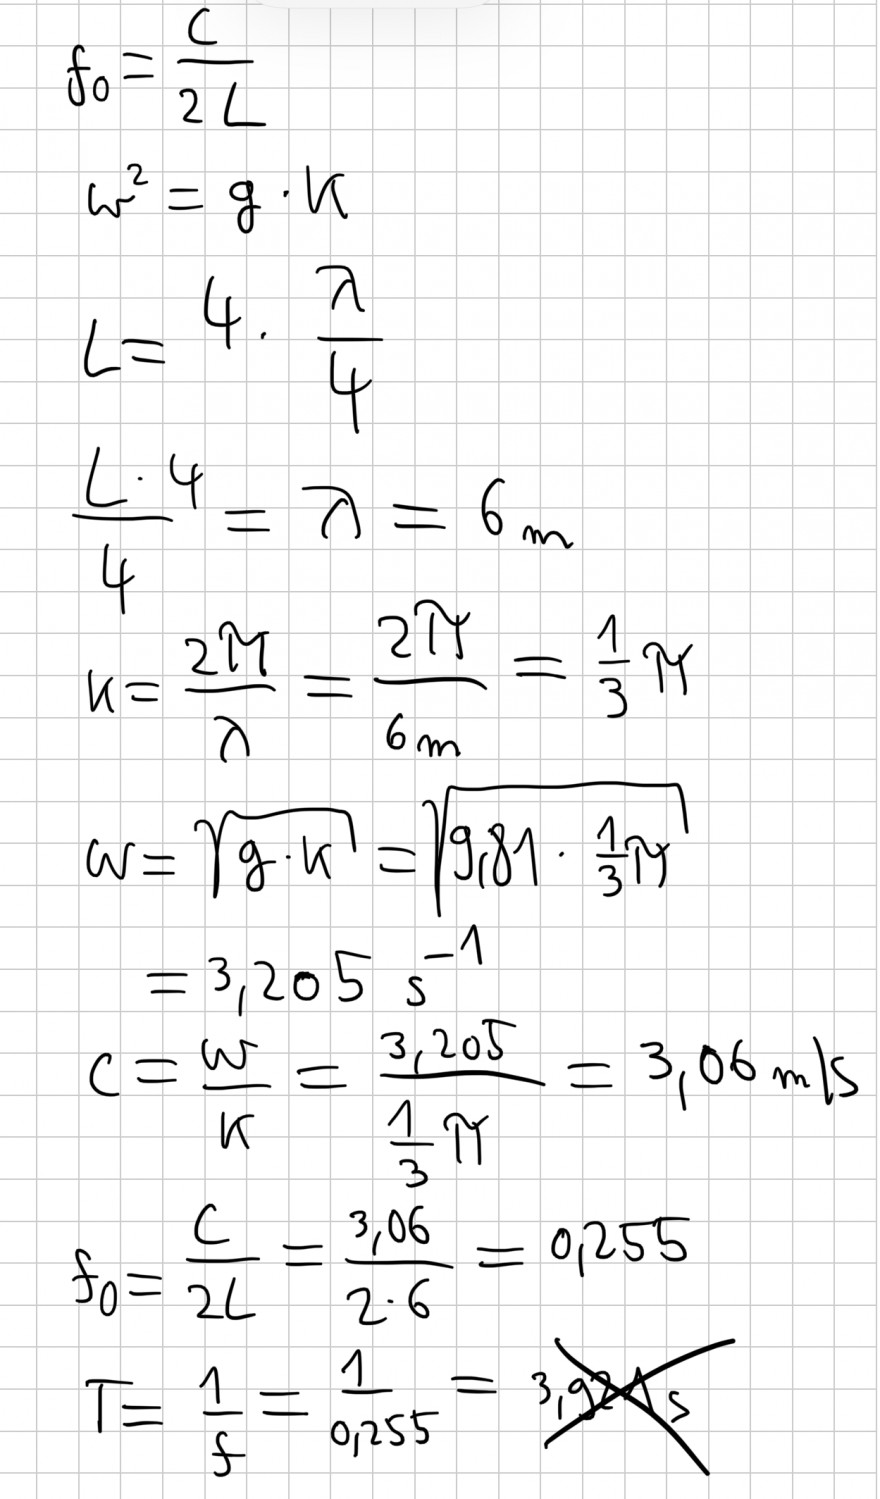 f₀ = C / 2L
w² = g · k
L = 4 · λ/4
L · 4 / 4 = λ = 6 m
k = 2π/λ = 2π/6m = 1/3 π
w = √(g · k) = √(9,81 · 1/3 π)
= 3,205 s⁻¹
C = w/k = 3,205 / (1/3 π) = 3,06 m/s
f₀ = C/2L = 3,06 / 2·6 = 0,255
T = 1/f = 1/0,255 =